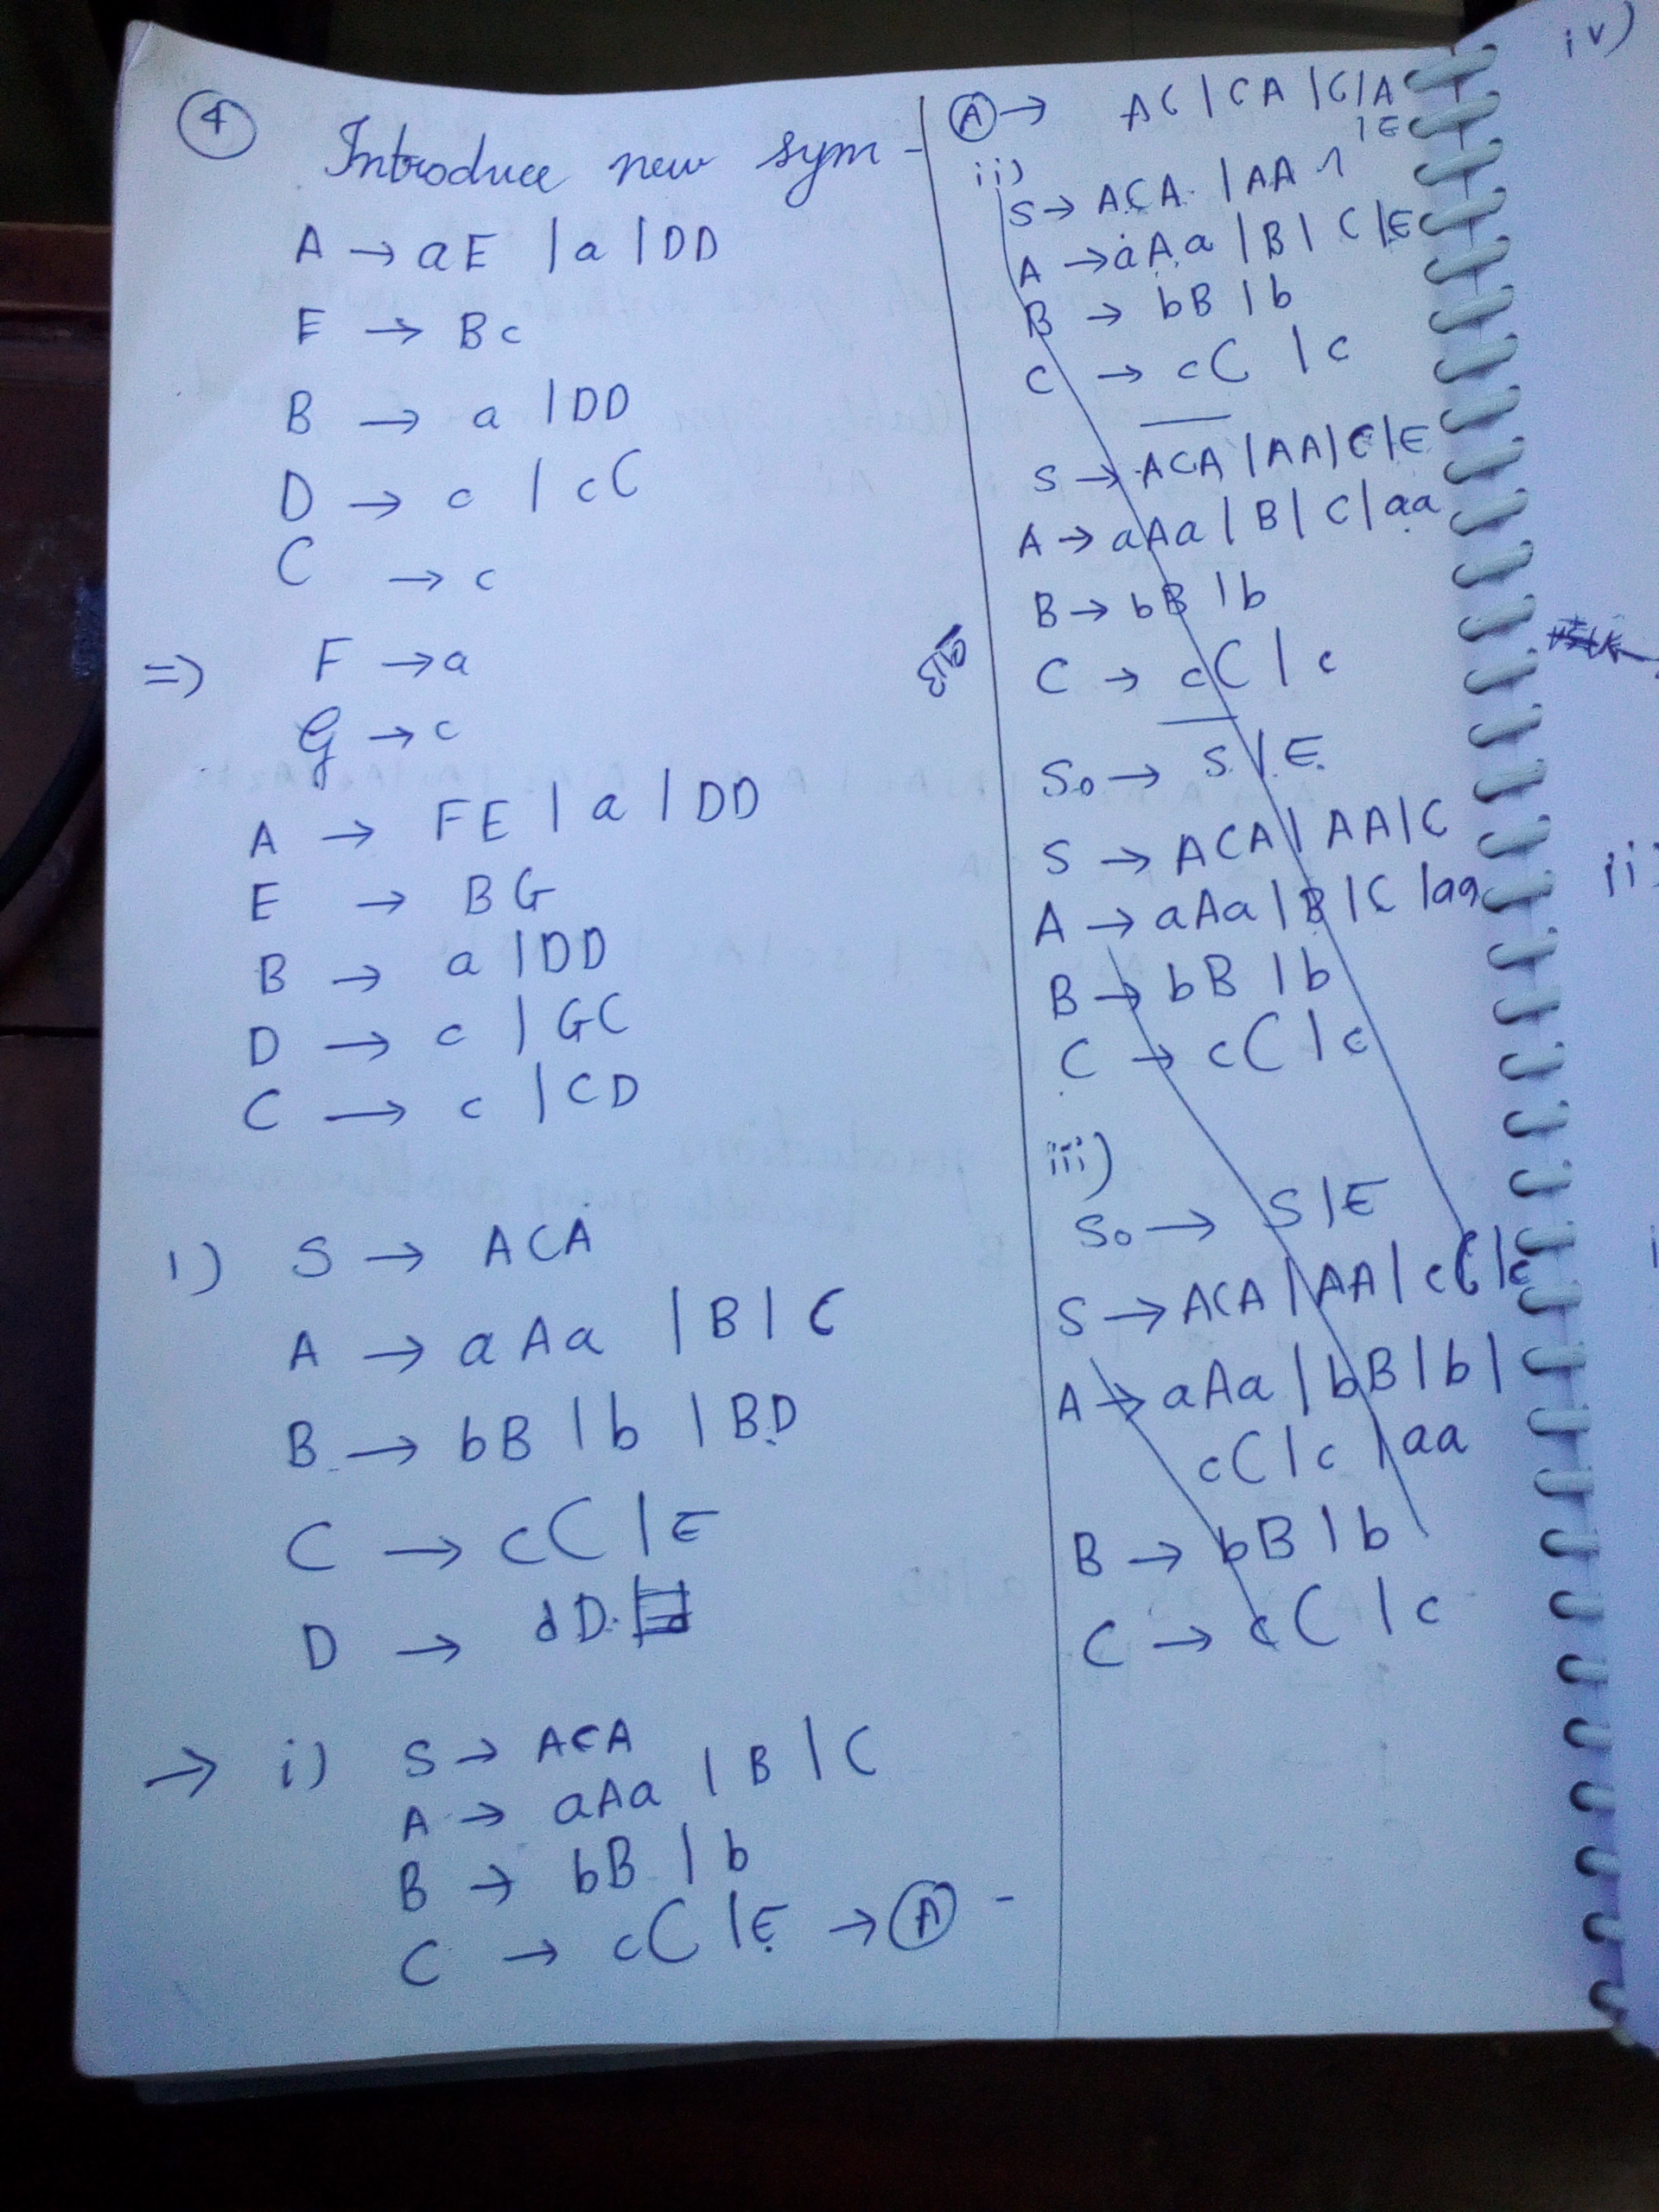 4
Introduce new sym-
A → aE | a | DD
E → Bc
B → a | DD
D → c | cC
C → c
=> F → a
G → c
A → FE | a | DD
E → BG
B → a | DD
D → c | GC
C → c | CD
1) S → ACA
A → aAa | B | C
B → bB | b | BD
C → cC | E
D → dD
→ i) S → ACA
A → aAa | B | C
B → bB | b
C → cC | E → A -
A → AC | CA | C | A
| E
ii)
S → ACA | AA
A → aAa | B | C | E
B → bB | b
C → cC | c
S → ACA | AA | C | E
A → aAa | B | C | aa
B → bB | b
C → cC | c
S0 → S | E
S → ACA | AA | C
A → aAa | B | C | aa
B → bB | b
C → cC | c
iii)
S0 → S | E
S → ACA | AA | cC | c
A → aAa | bB | b |
cC | c | aa
B → bB | b
C → cC | c
iv)